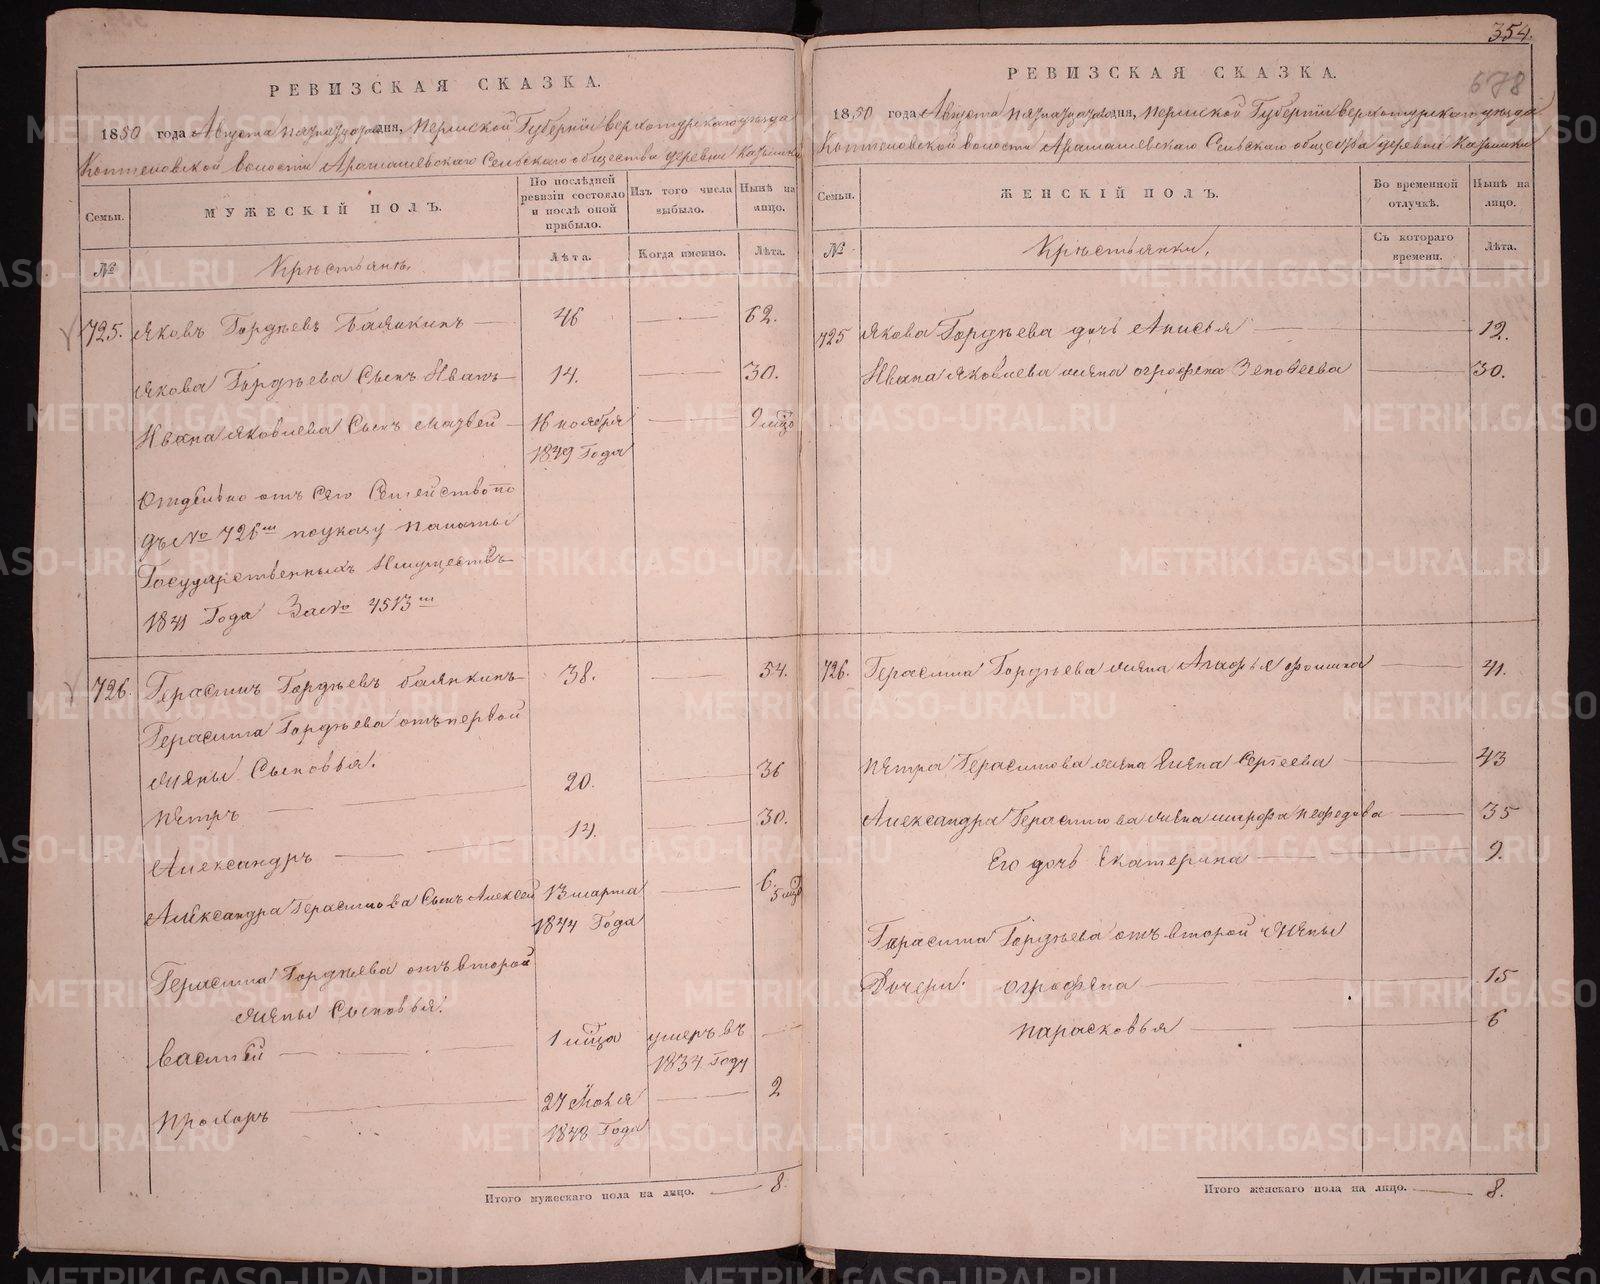 354.
678
РЕВИЗСКАЯ СКАЗКА.
1850 года Августа пятнадцатого дня, Пермской Губернии Верхотурского уезда
Коптеловской волости Арамашевского Сельского общества деревни
Семьи.
МУЖЕСКІЙ ПОЛЪ.
По послѣдней ревизіи состояло и послѣ оной прибыло.
Изъ того числа выбыло.
Нынѣ на лицо.
№
Крестьянъ,
Лѣта.
Когда именно.
Лѣта.
725. Яковъ Гордѣевъ — 46 — 62.
Якова Гордѣева Сынъ Иванъ — 14. — 30.
Ивана Яковлева Сынъ Матвей — 16 ноября 1849 Года — 9 мѣц
Отдельно отъ Сего Семейство по
дъ № 726м по указу палаты
Государственныхъ Имуществъ
1841 Года За № 4513м
726. Герасимъ Гордѣевъ — 38. — 54.
Герасима Гордѣева отъ первой
жены Сыновья.
Петръ — 20. — 36
Александръ — 14. — 30.
Александра Герасимова Сынъ Алексей 13 марта 1844 Года — 6. 5 мѣц
Герасима Гордѣева отъ второй
жены Сыновья:
Василей — 1 мѣца умеръ въ 1834 Году —
Прохоръ — 27 Июля 1848 Года — 2
Итого мужескаго пола на лицо. — 8.
РЕВИЗСКАЯ СКАЗКА.
1850 года Августа пятнадцатого дня, Пермской Губернии Верхотурского уезда
Коптеловской волости Арамашевского Сельского общества деревни
Семьи.
ЖЕНСКІЙ ПОЛЪ.
Во временной отлучкѣ.
Нынѣ на лицо.
№
Крестьянки,
Съ котораго времени.
Лѣта.
725 Якова Гордѣева дочь Анисья — 12.
Ивана Яковлева жена Огрофена — 30.
726. Герасима Гордѣева жена Агафья Фомина — 41.
Петра Герасимова жена Елена Сергеева — 43
Александра Герасимова жена Нефедова — 35
Его дочь Екатерина — 9.
Герасима Гордѣева отъ второй жены
Дочери: Огрофена — 15
Парасковья — 6
Итого женскаго пола на лицо. — 8.
METRIKI.GASO-URAL.RU